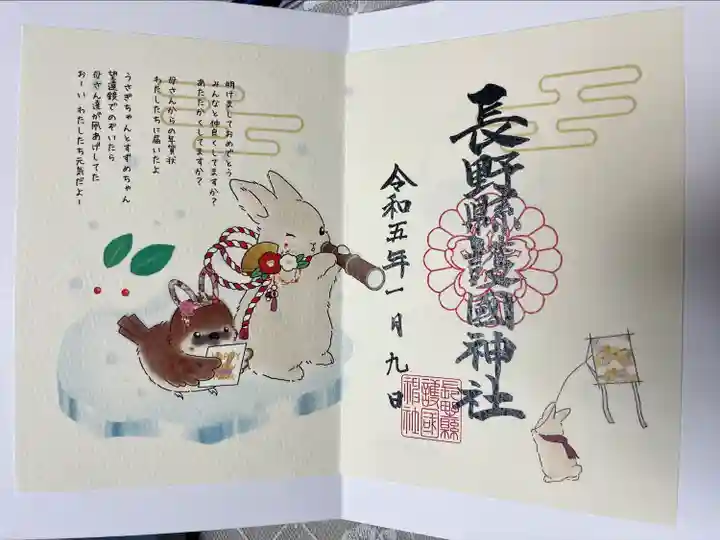 長野縣護國神社
令和五年一月九日
長野縣護國神社
明けましておめでとう
みんなと仲良くしてますか？
あたたかくしてますか？
母さんからの年賀状
わたしたちに届いたよ
うさぎちゃんとすずめちゃん
望遠鏡でのぞいたら
母さん達が凧あげしてた
おーい わたしたち元気だよー